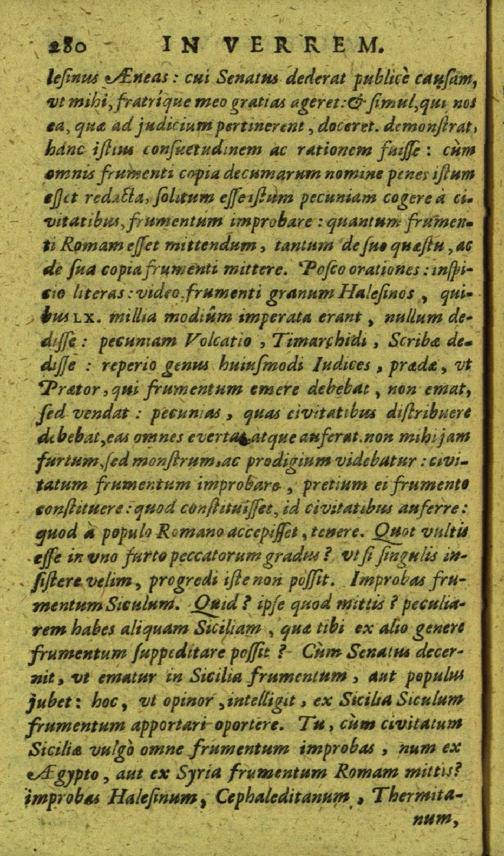 280 IN VERREM.
lesinus Æneas: cui Senatus dederat publicè causam,
vt mihi, fratríque meo gratias ageret: & simul, qui nos
ea, quæ ad judicium pertinerent, doceret. demonstrat,
hanc istius consuetudinem ac rationem fuisse: cùm
omnis frumenti copia decumarum nomine penes istum
esset redacta, solitum esse istum pecuniam cogere à ci-
vitatibus, frumentum improbare: quantum frumen-
ti Romam esset mittendum, tantum de suo quæstu, ac
de sua copia frumenti mittere. Posco orationes: inspi-
cio literas: video frumenti granum Halesinos, qui-
bus LX. millia modiûm imperata erant, nullum de-
disse: pecuniam Volcatio, Timarchidi, Scribæ de-
disse: reperio genus huiusmodi Iudices, prædæ, vt
Prætor, qui frumentum emere debebat, non emat,
sed vendat: pecunias, quas civitatibus distribuere
debebat, eas omnes evertat atque auferat. non mihi jam
furtum, sed monstrum, ac prodigium videbatur: civi-
tatum frumentum improbare, pretium ei frumento
constituere: quod constituisset, id civitatibus auferre:
quod à populo Romano accepisset, tenere. Quot vultis
esse in vno furto peccatorum gradus? vt si singulis in-
sistere velim, progredi iste non possit. Improbas fru-
mentum Siculum. Quid? ipse quod mittis? peculia-
rem habes aliquam Siciliam, quæ tibi ex alio genere
frumentum suppeditare possit? Cùm Senatus decer-
nit, vt ematur in Sicilia frumentum, aut populus
jubet: hoc, vt opinor, intelligit, ex Sicilia Siculum
frumentum apportari oportere. Tu, cùm civitatum
Siciliæ vulgò omne frumentum improbas, num ex
Ægypto, aut ex Syria frumentum Romam mittis?
improbas Halesinum, Cephaleditanum, Thermita-
num,